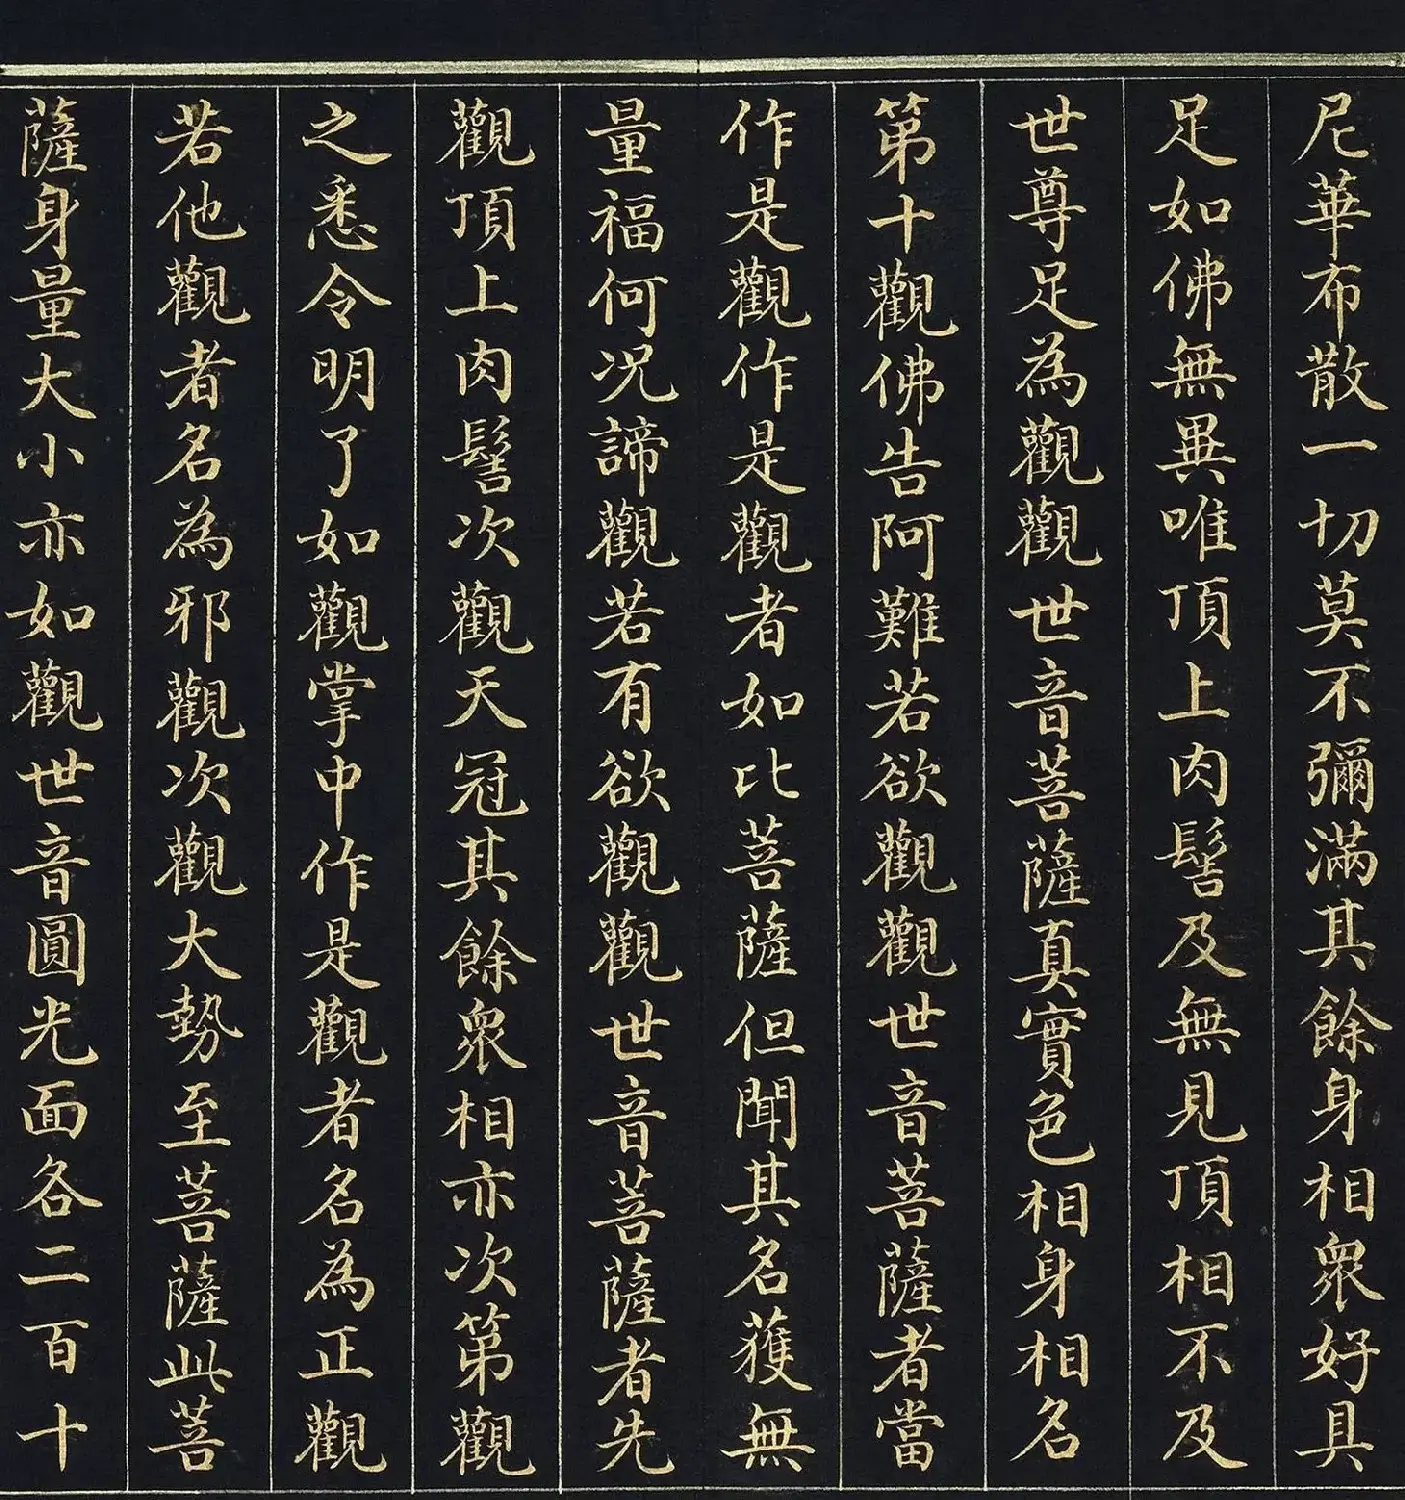 尼華布散一切莫不彌滿其餘身相衆好具
足如佛無異唯頂上肉髻及無見頂相不及
世尊足為觀觀世音菩薩真實色相身相名
第十觀佛告阿難若欲觀觀世音菩薩者當
作是觀作是觀者如比菩薩但聞其名獲無
量福何况諦觀若有欲觀觀世音菩薩者先
觀頂上肉髻次觀天冠其餘衆相亦次第觀
之悉令明了如觀掌中作是觀者名為正觀
若他觀者名為邪觀次觀大勢至菩薩此菩
薩身量大小亦如觀世音圓光面各二百十